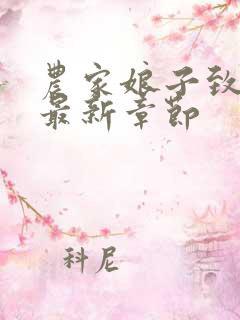 農家娘子致
最新章節
科尼